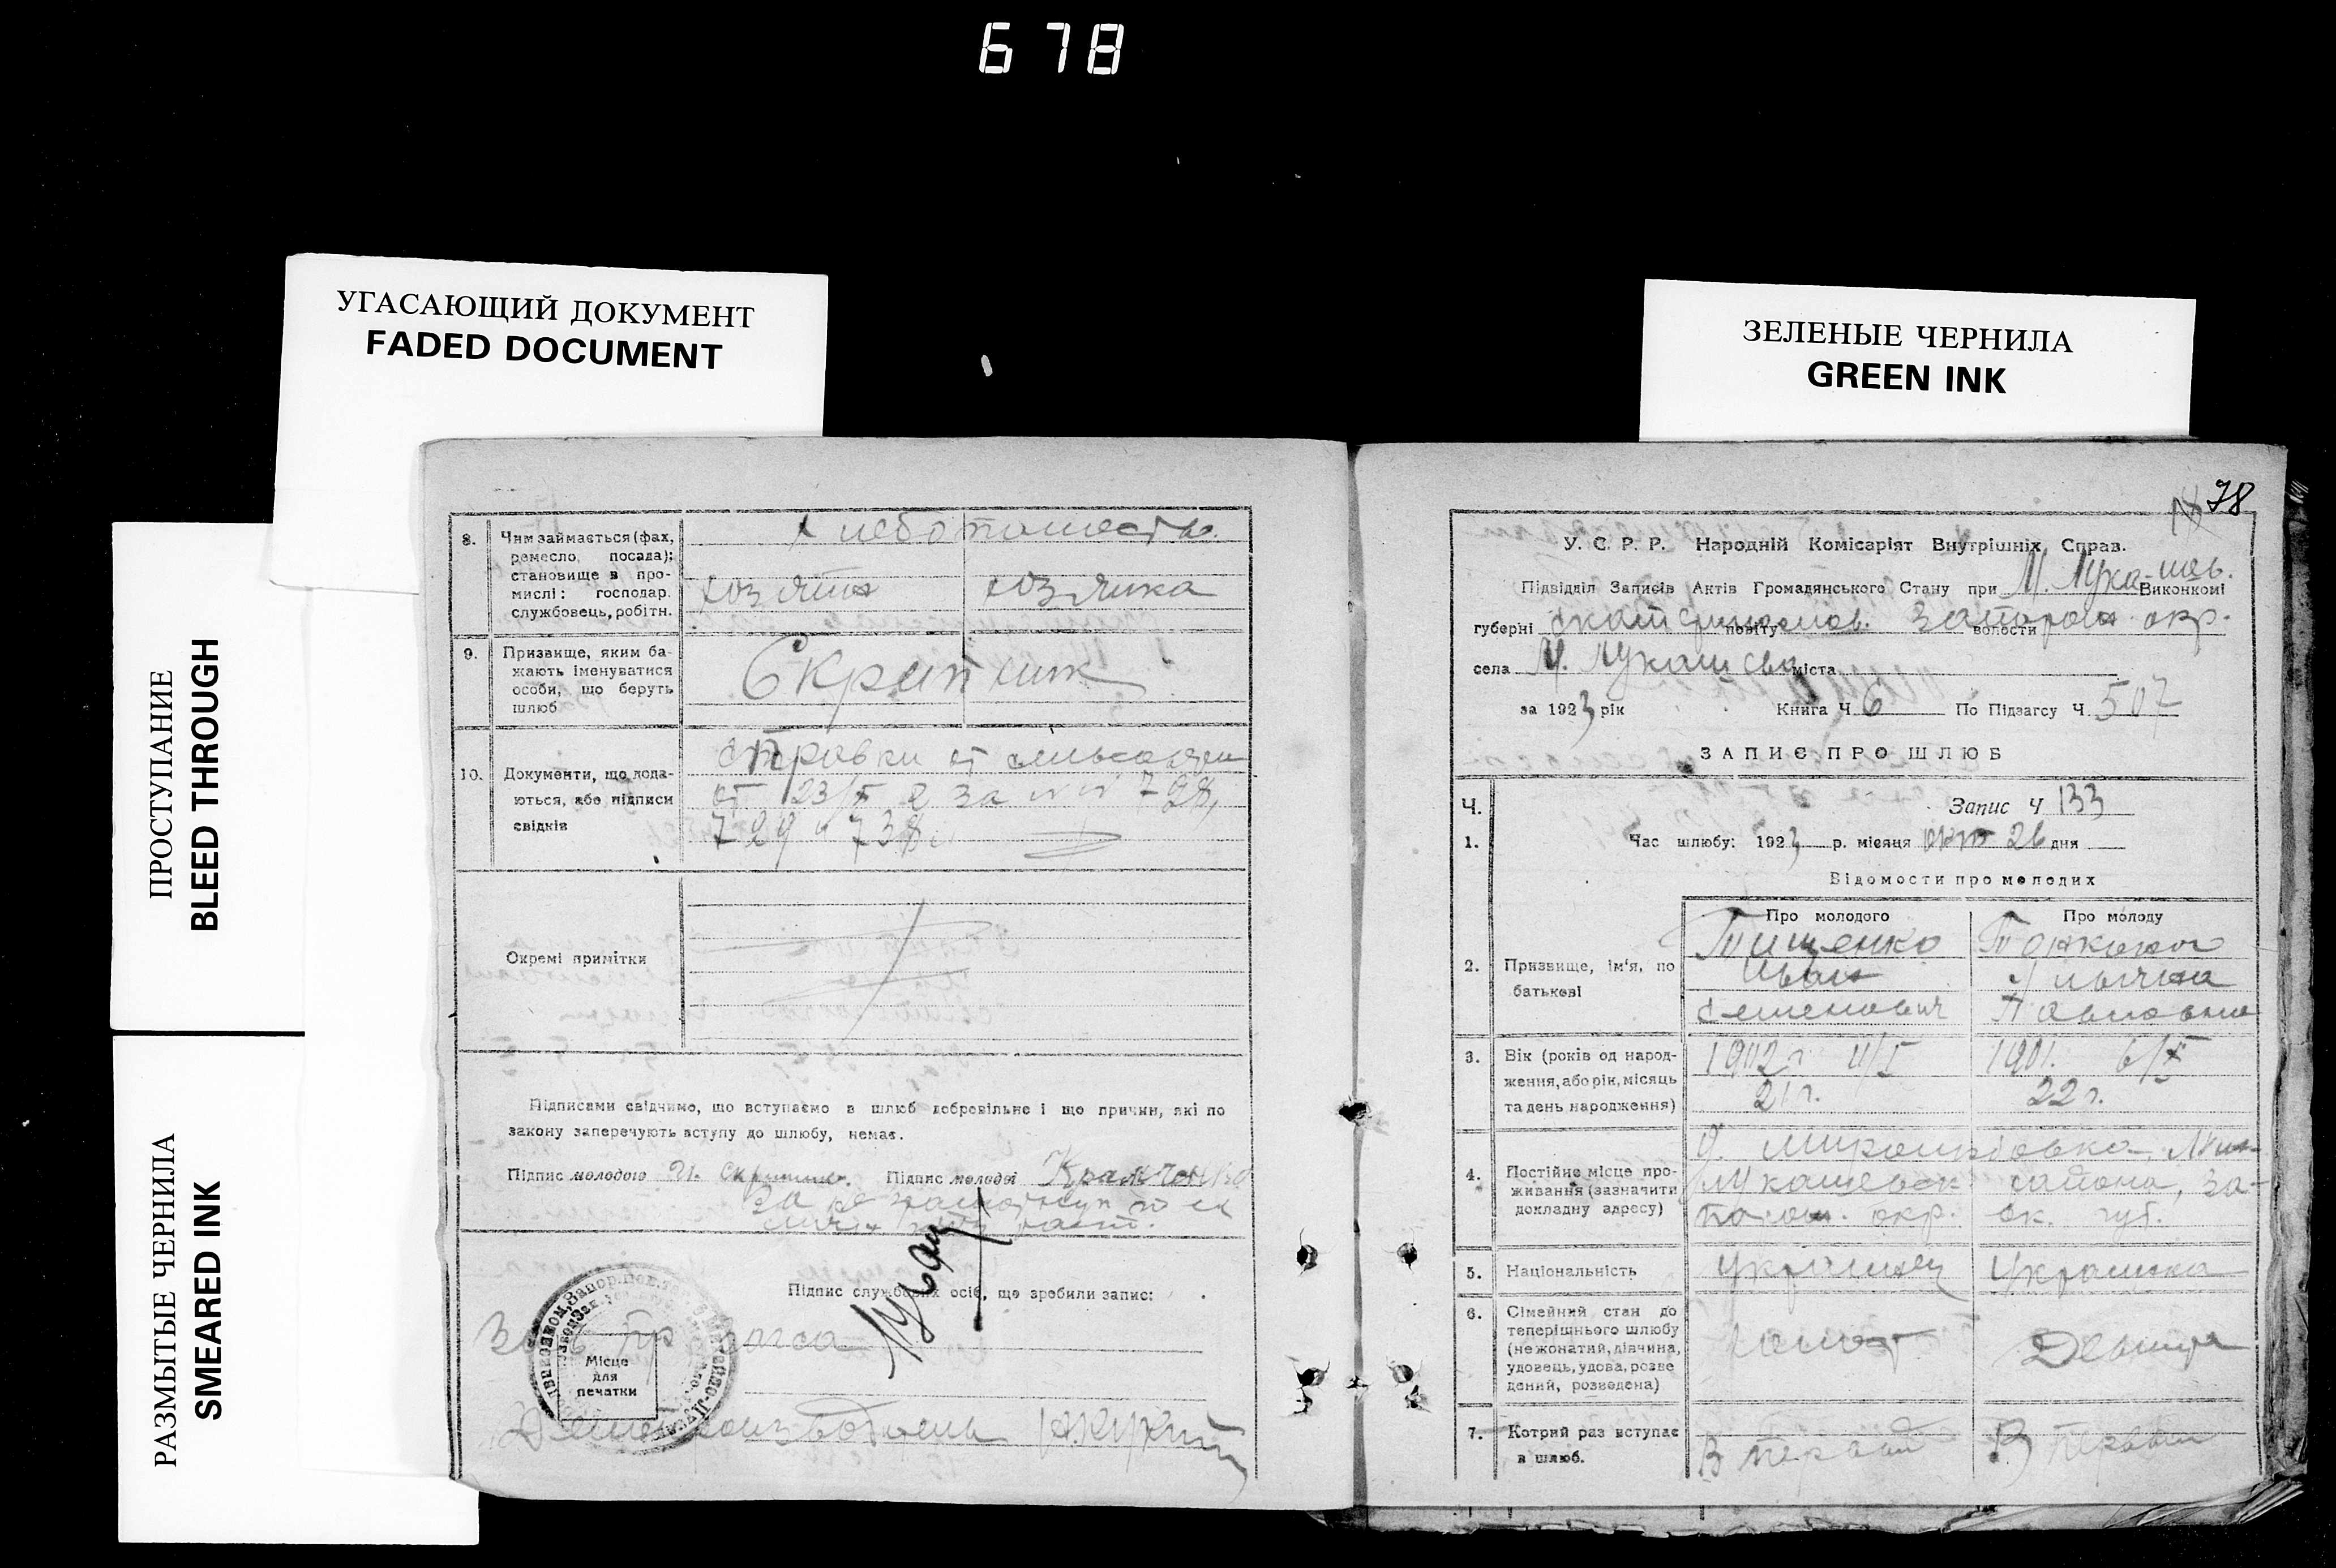 678
УГАСАЮЩИЙ ДОКУМЕНТ
FADED DOCUMENT
ПРОСТУПАНИЕ
BLEED THROUGH
РАЗМЫТЫЕ ЧЕРНИЛА
SMEARED INK
ЗЕЛЕНЫЕ ЧЕРНИЛА
GREEN INK
8. Чим займається (фах,
ремесло, посада);
становище в про-
мислі: господар.
службовець, робітн.
хозяин хозяйка
9. Призвище, яким ба-
жають іменуватися
особи, що беруть
шлюб
Скрипник
10. Документи, що пода-
ються, або підписи
свідків
от 23/X за №№ 728,
729 и 738
Окремі примітки
Підписами свідчимо, що вступаємо в шлюб добровільно і що причин, які по
закону заперечують вступу до шлюбу, немає.
Підпис молодого Підпис молодої
Підпис службових осіб, що зробили запис:
Місце
для
печатки
Делопроизводитель
78
У. С. Р. Р. Народній Комісаріят Внутрішніх Справ.
Підвідділ Записів Актів Громадянського Стану при М. Лукашев. Виконкомі
губерні Екатеринослав. повіту Запорож. волости окр.
села М. Лукашево міста
за 1923 рік Книга Ч. 6 По Підзагсу Ч. 507
ЗАПИС ПРО ШЛЮБ
Ч. Запис Ч 133
1. Час шлюбу: 1923 р. місяця окт 26 дня
Відомости про молодих
Про молодого Про молоду
2. Призвище, ім'я, по
батькові
Тищенко
Иван
Семенович Павловна
3. Вік (років од народ-
ження, або рік, місяць
та день народження)
1902 г. 1901. 6/X
21 г. 22 г.
4. Постійне місце про-
живання (зазначити
докладну адресу)
Лукашевск района, За-
окр. Ек. губ.
5. Національність Украинец Украинка
6. Сімейний стан до
теперішнього шлюбу
(нежонатий, дівчина,
удовець, удова, розве
дений, розведена)
Холост Девица
7. Котрий раз вступає
в шлюб.
В первый В первый